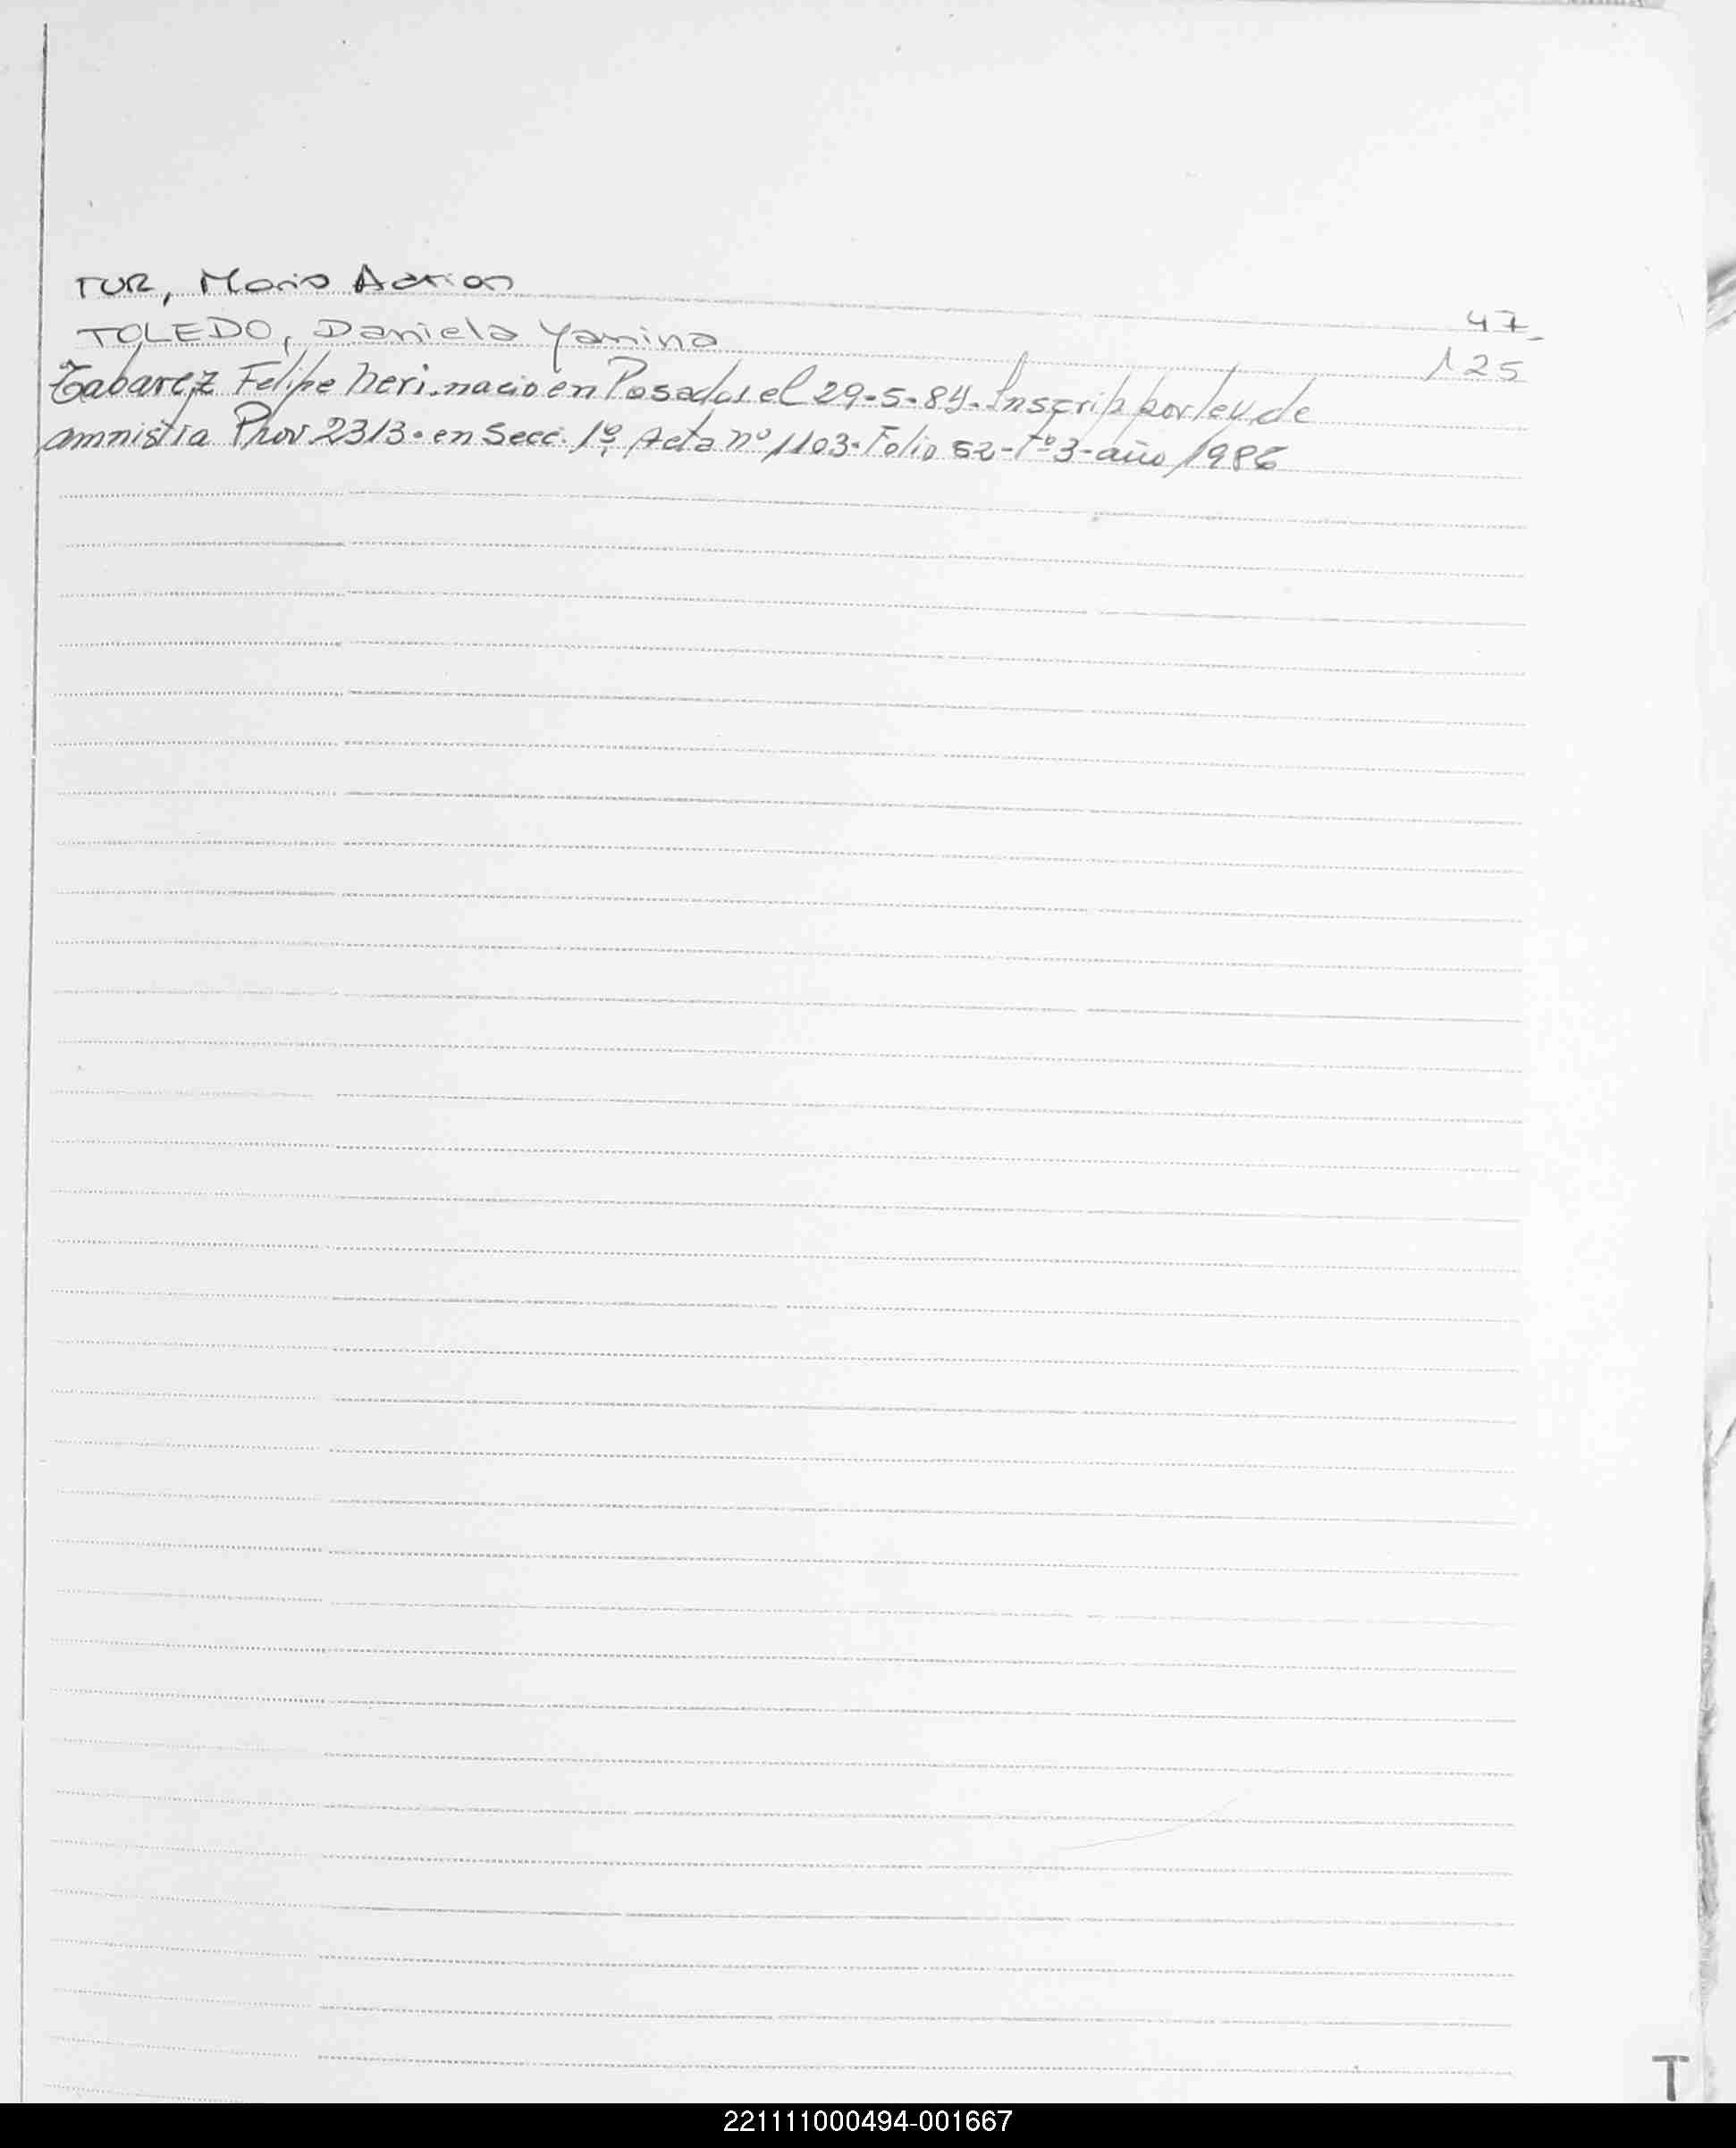 TUR, Mario Adrian 47-
TOLEDO, Daniela Yanina 125
Tabarez Felipe Neri. nacio en Posadas el 29-5-84. Inscrip por ley de
amnistia Prov 2313. en Secc. 1º, Acta nº 1103. Folio 52-Tº3-año 1986
T
221111000494-001667